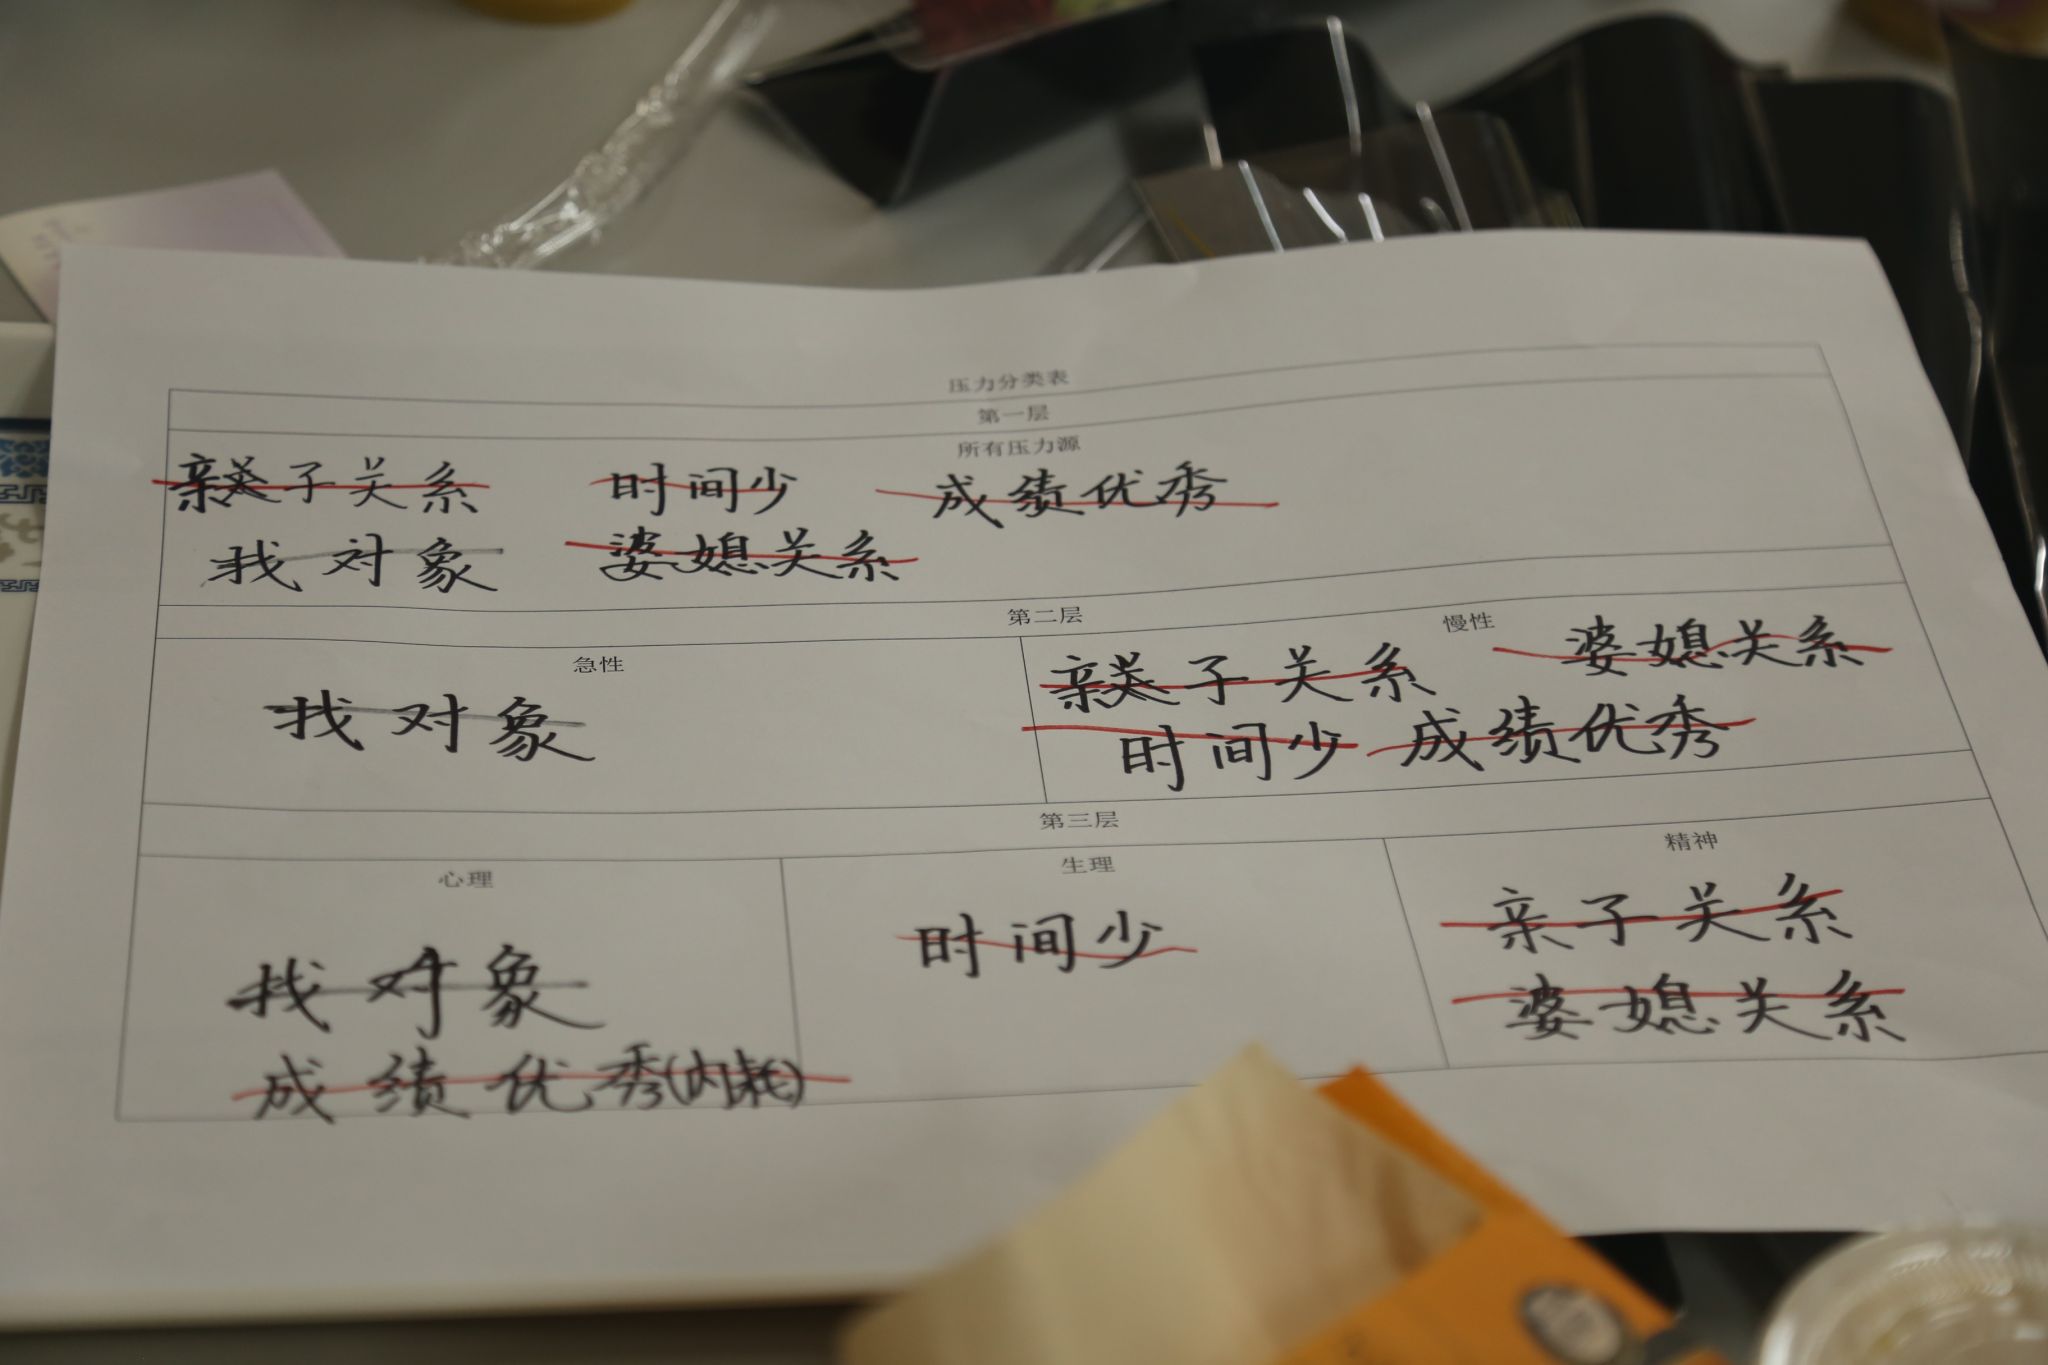 压力分类表
第一层
所有压力源
亲子关系 时间少 成绩优秀
找对象 婆媳关系
第二层
急性
找对象
慢性
婆媳关系
亲子关系
时间少 成绩优秀
第三层
心理
找对象
成绩优秀(内耗)
生理
时间少
精神
亲子关系
婆媳关系